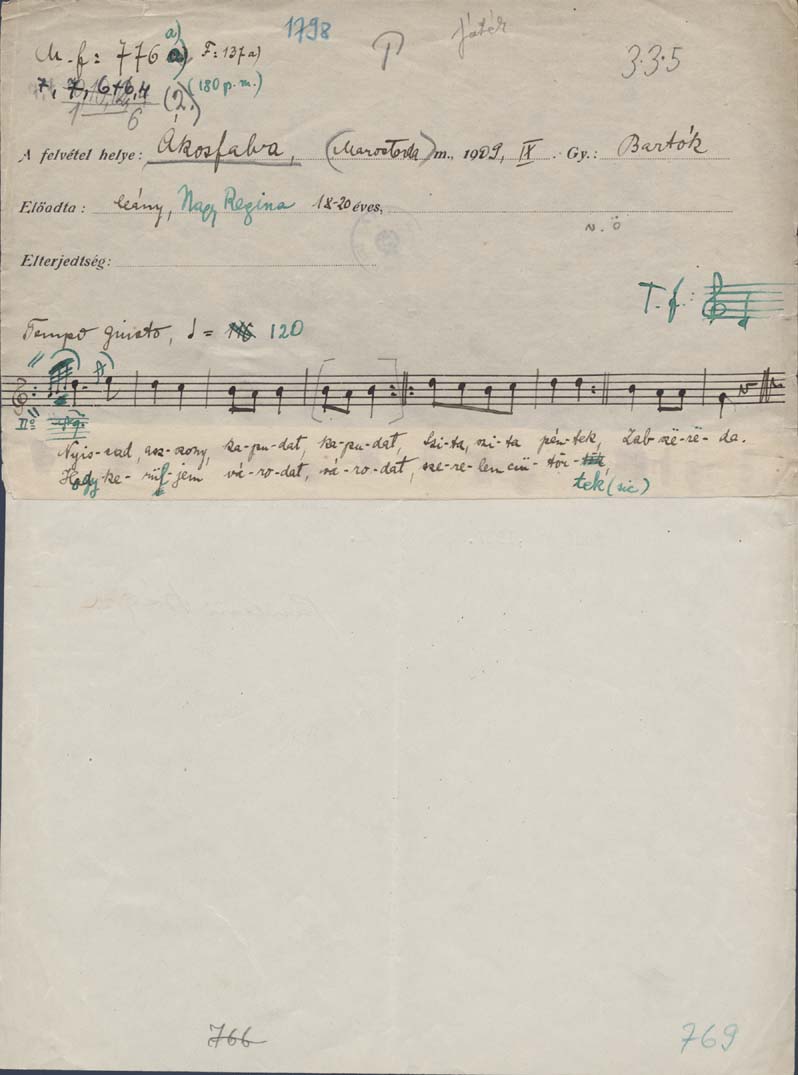 1798
P
játék
3.3.5
M.f: 776 a) F: 137 a)
a)
7, 7, 6+6,4 (2.) (180 p.m.)
1 6
A felvétel helye: Ákosfalva, (Marostorda) m., 1909, IX. Gy.: Bartók
Előadta: leány, Nagy Regina 18-20 éves,
Elterjedtség:
T.f.:
Tempo giusto, ♩ = 120
IIº
Nyis-sad, asz-szony, ka-pu-dat, ka-pu-dat, Szi-ta, szi-ta pén-tek, Zab-szë-rë-da.
Hogy ke-rülj-jem vá-ro-dat, vá-ro-dat, sze-re-lem csü-tör-
tek (sic)
766
769